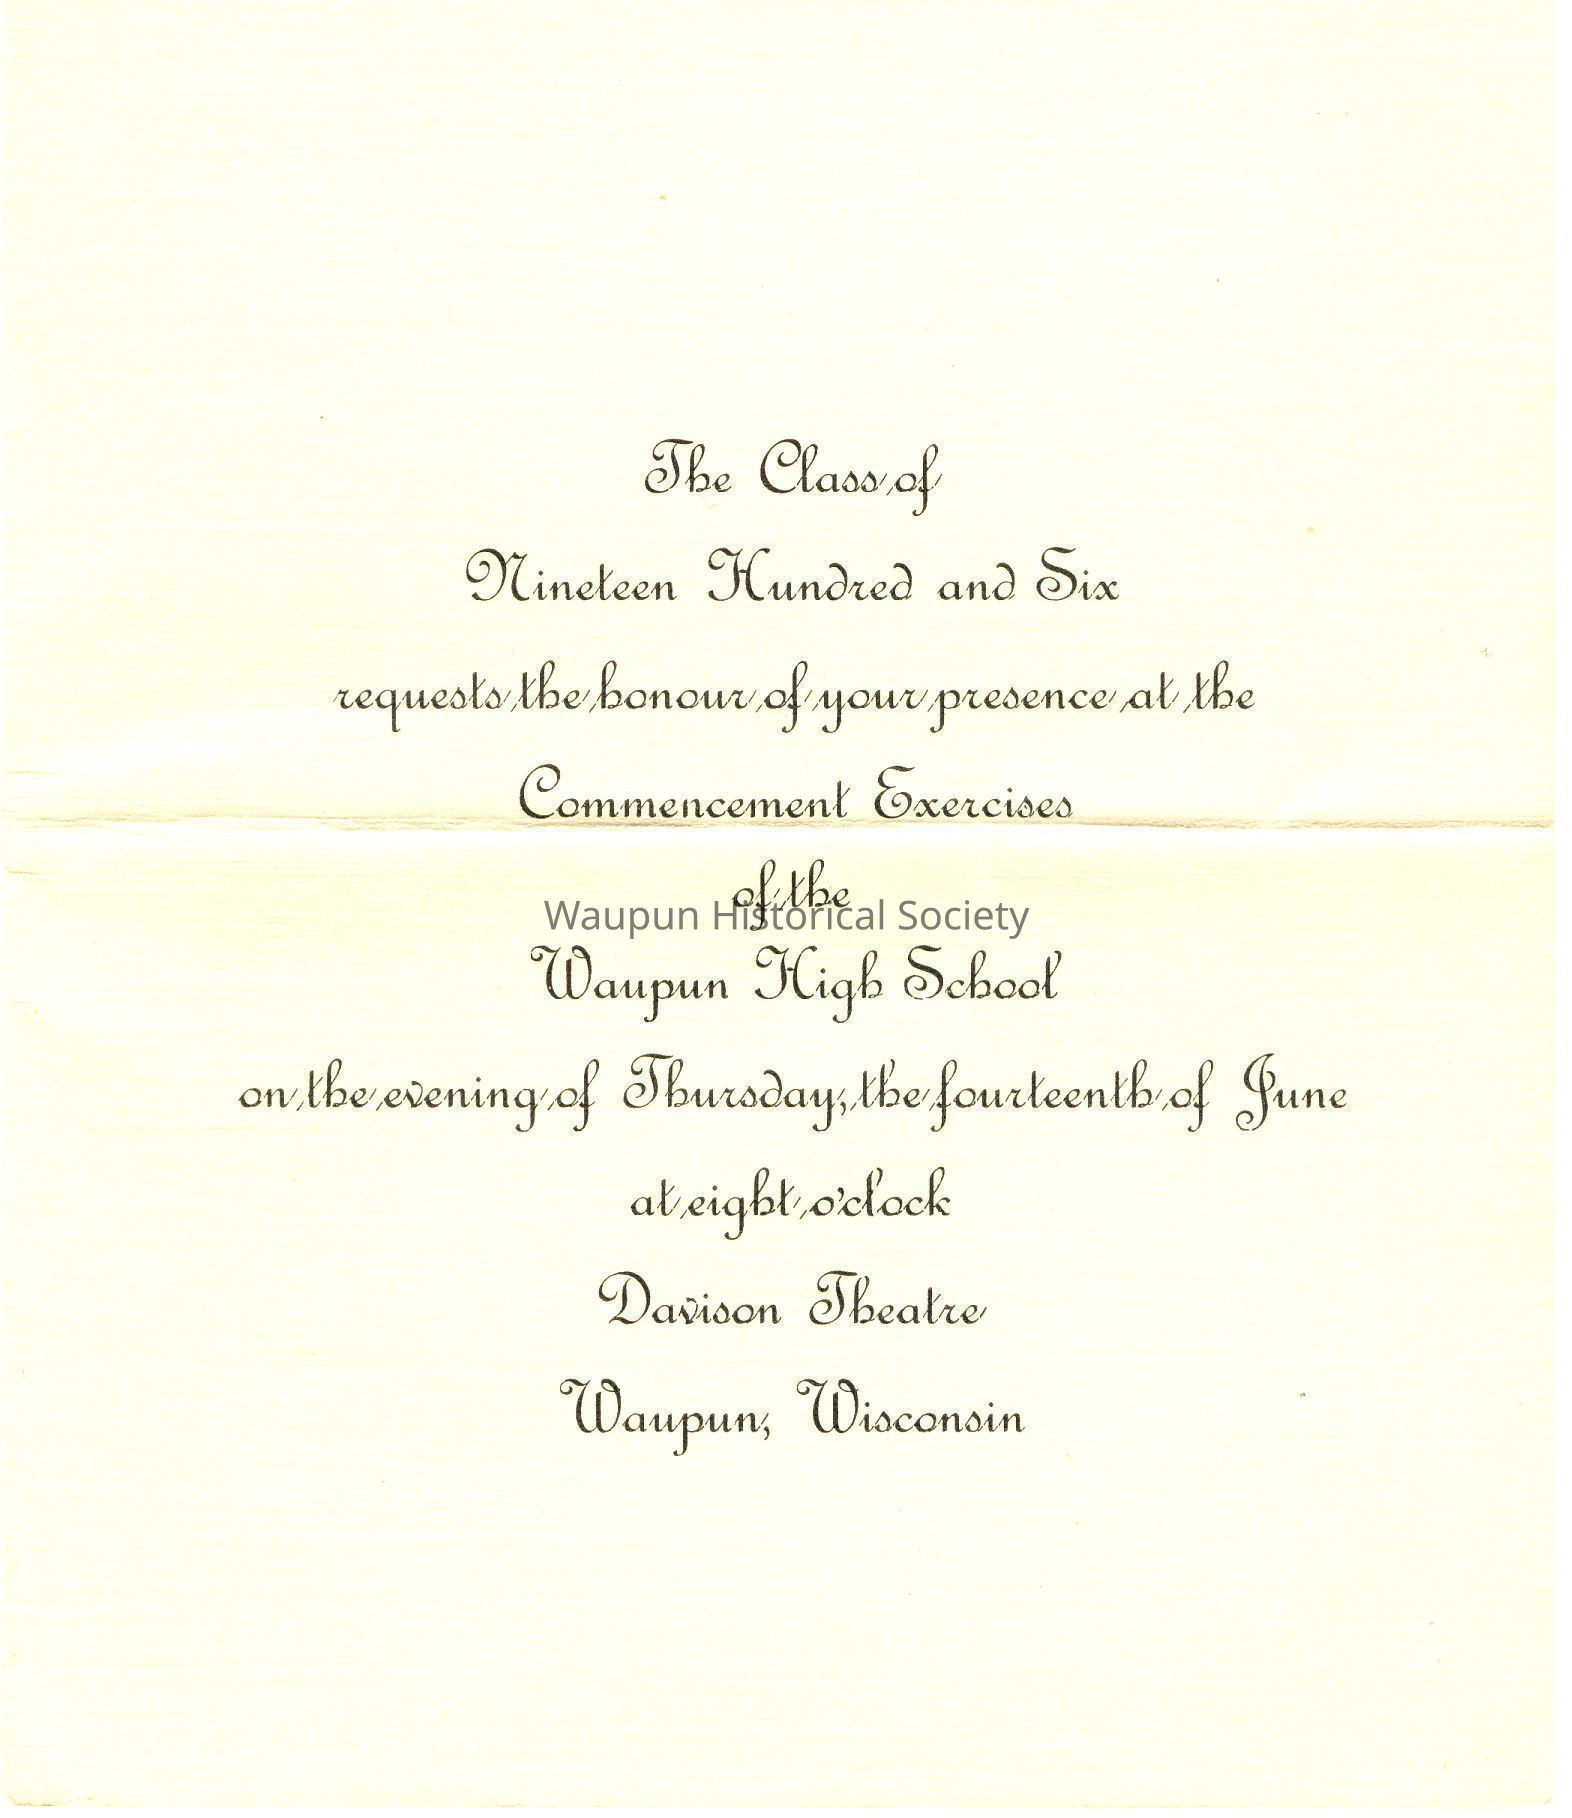 The Class of
Nineteen Hundred and Six
requests the honour of your presence at the
Commencement Exercises
of the
Waupun Historical Society
Waupun High School
on the evening of Thursday, the fourteenth of June
at eight o'clock
Davison Theatre
Waupun, Wisconsin